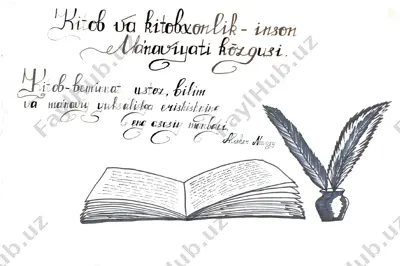 Kitob va kitobxonlik - inson
Ma'naviyati ko'zgusi.
Kitob-beminnat ustoz, bilim
va ma'naviy yuksalishga erishishning
eng asosiy manbayi.
Alisher
FaylHub.uz